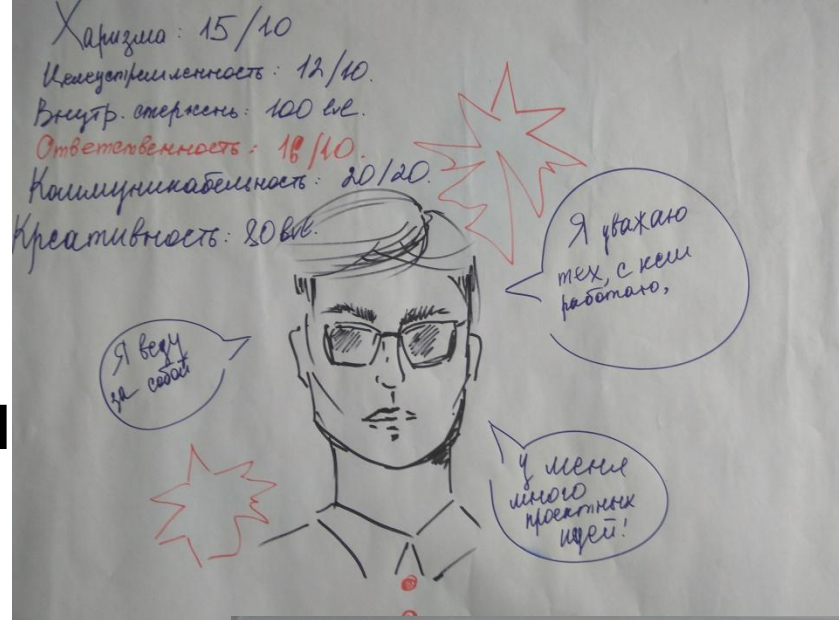 Харизма: 15/10
Целеустремленность: 12/10.
Внутр. стержень: 100 ел.
Ответственность: 16/10.
Коммуникабельность: 20/20.
Креативность: 80 ел.
Я уважаю
тех, с кем
работаю,
Я веду
за собой
У меня
много
проектных
идей!